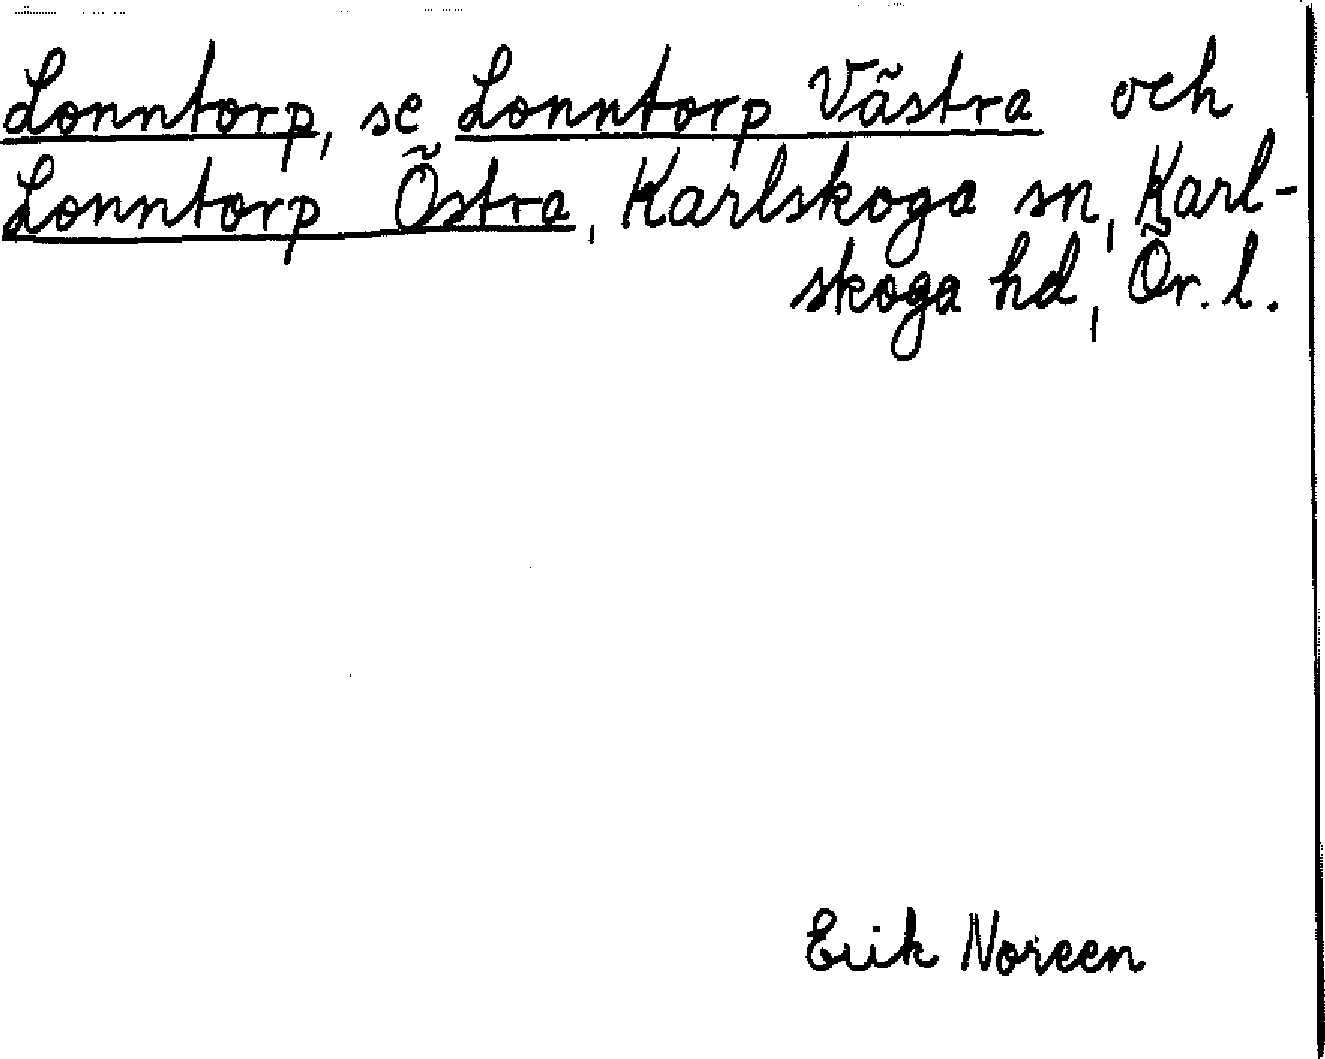 Lonntorp, se Lonntorp Västra och
Lonntorp Östra, Karlskoga sn, Karl-
skoga hd, Ör. l.
Erik Noreen